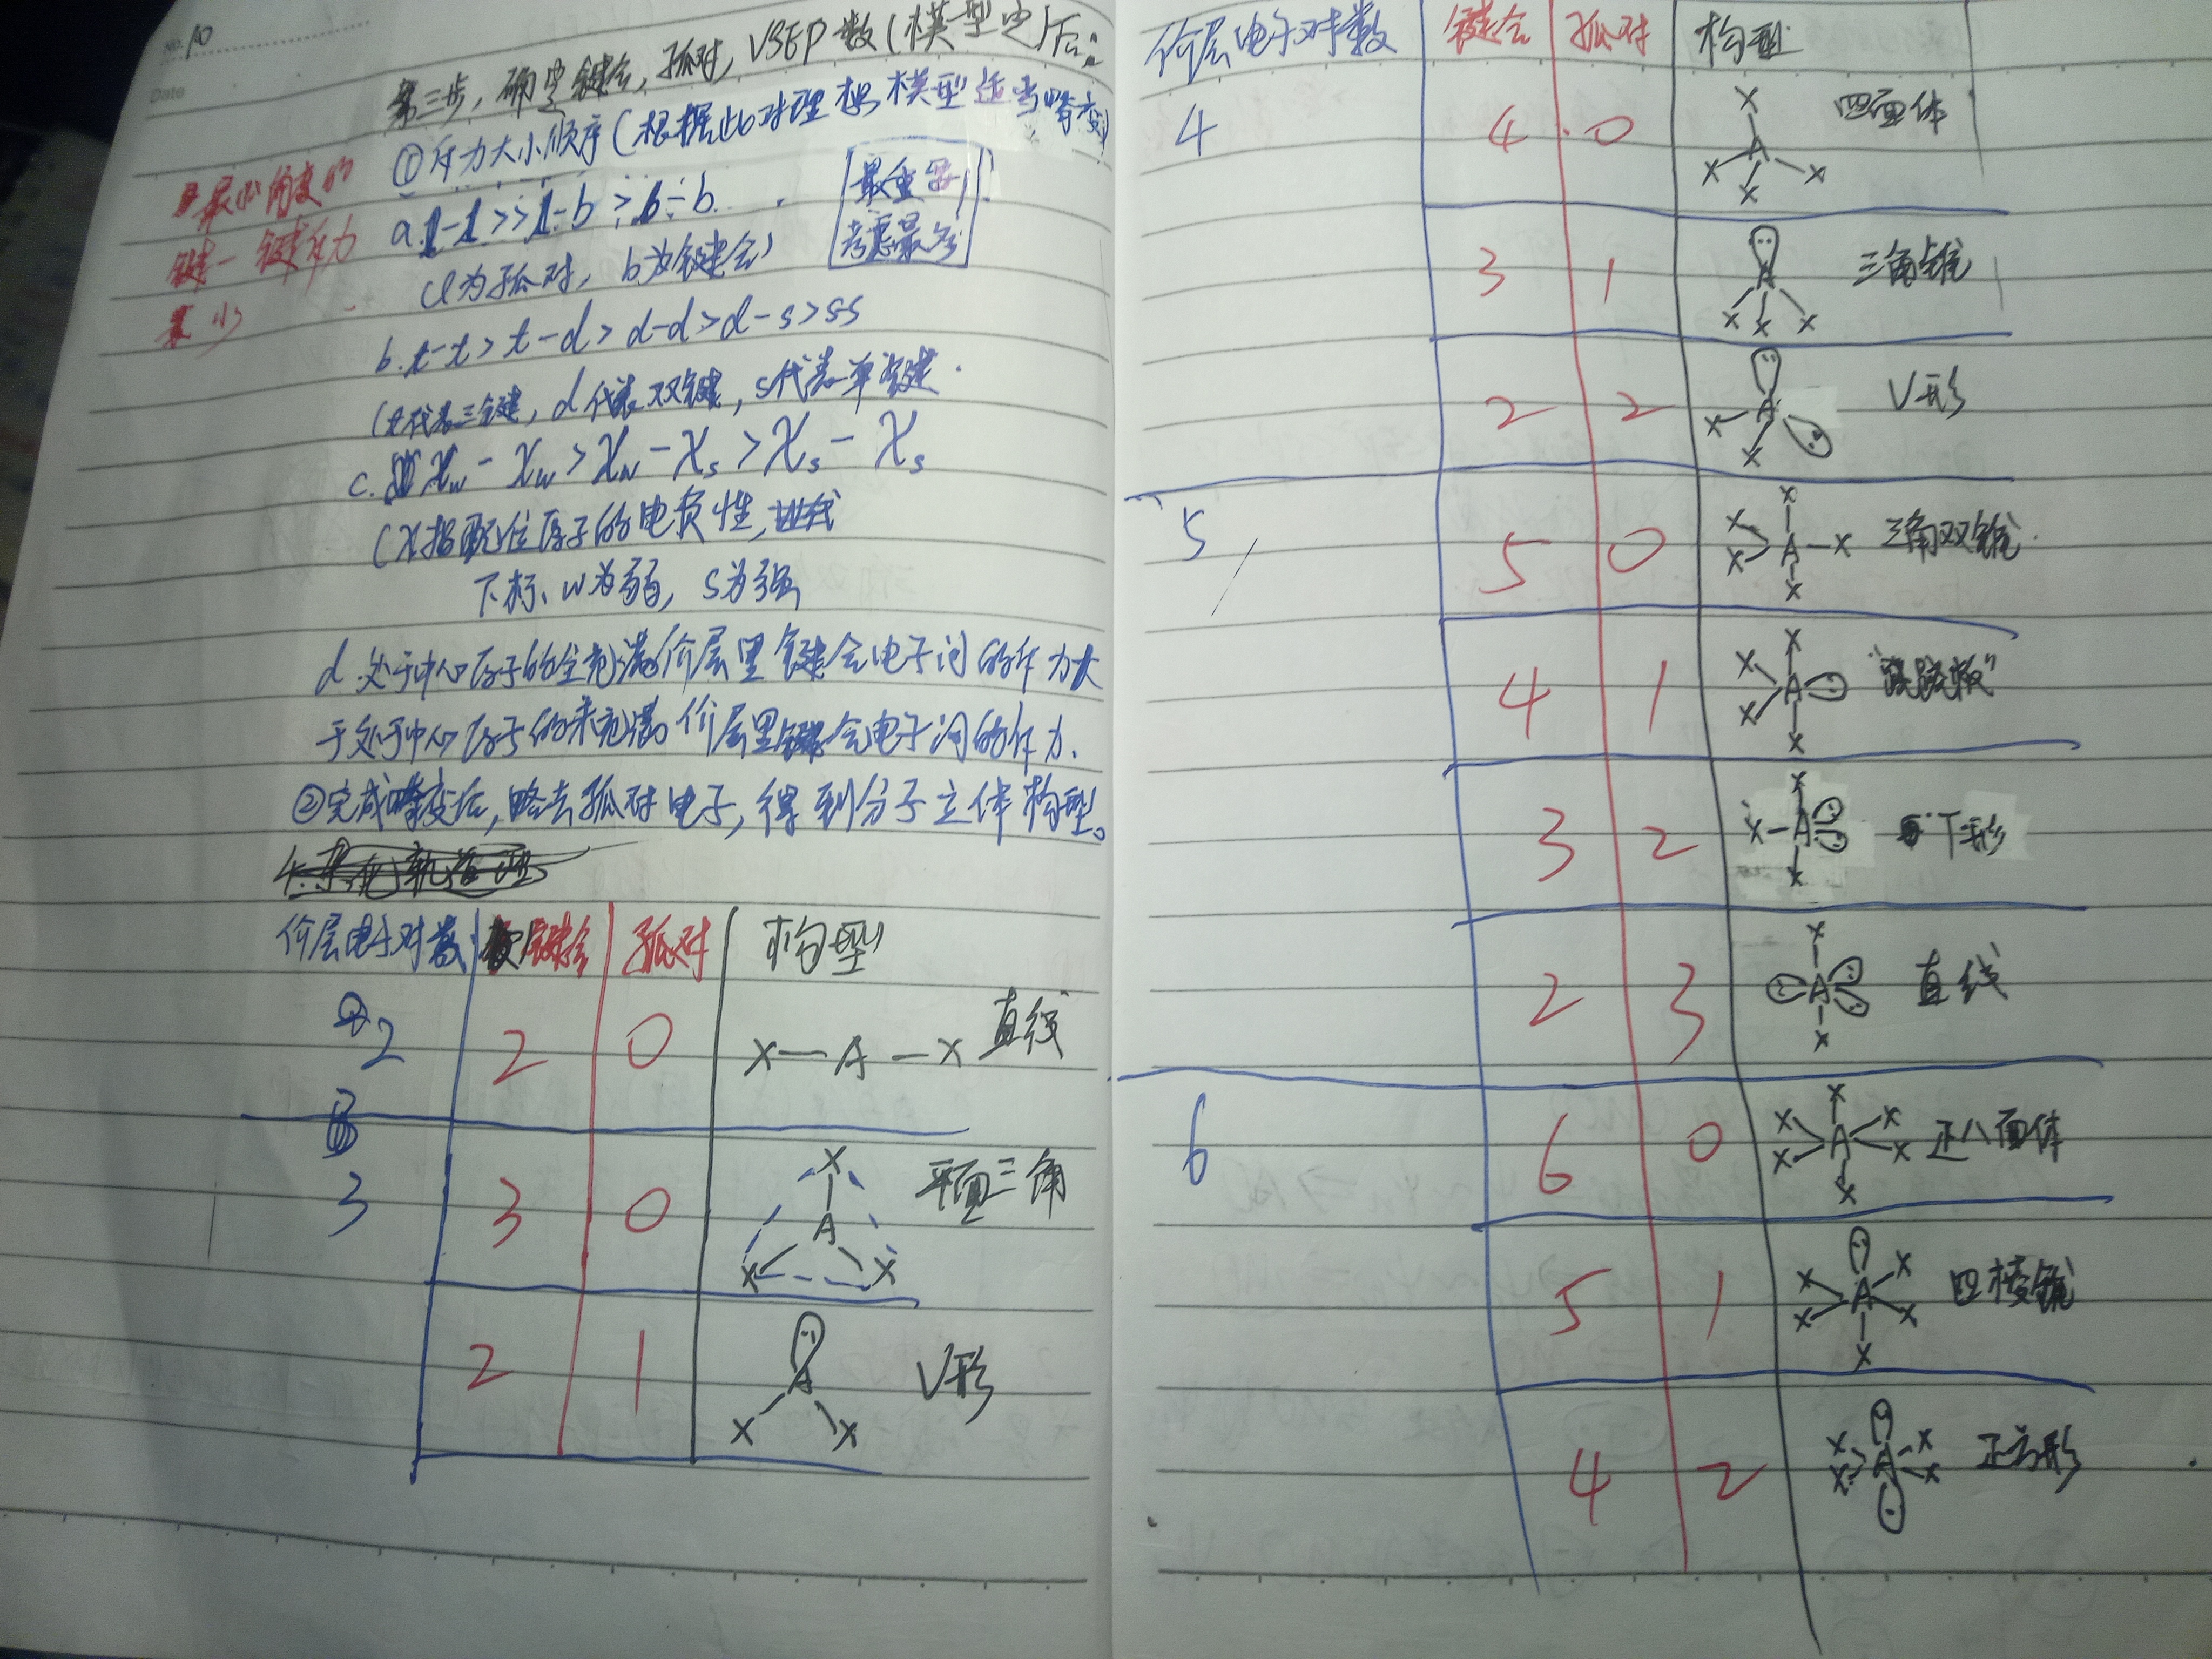 NO. 10
Date
第三步,确定键合,孤对,VSEP数(模型也)后:
①斥力大小顺序(根据此对理想模型适当畸变)
最小角度的
键-键斥力
最小
最重要
考虑最多
a.l-l>>l-b>b-b.
(l为孤对,b为键合)
b.t-t>t-d>d-d>d-s>ss
(t代表三键,d代表双键,s代表单键.
c.χw-χw>χw-χs>χs-χs
(χ指配位原子的电负性,
下标、w为弱,s为强
d.处于中心原子的全充满价层里键合电子间的斥力大
于处于中心原子的未充满价层里键合电子间的斥力.
②完成畸变后,略去孤对电子,得到分子立体构型。
4.杂化轨道理
价层电子对数 键合 孤对 构型
2 2 0 X—A—X 直线
3 3 0 X A X X 平面三角
2 1 A X X V形
价层电子对数 键合 孤对 构型
4 4 0 X A X X X 四面体
3 1 A X X X 三角锥
2 2 A X X V形
5 5 0 X X X A—X X 三角双锥.
4 1 X X X A X "跷跷板"
3 2 X X—A X T形
2 3 X A X 直线
6 6 0 X X X A X X X 正八面体
5 1 X X A X X X 四棱锥
4 2 X X A X X 正方形